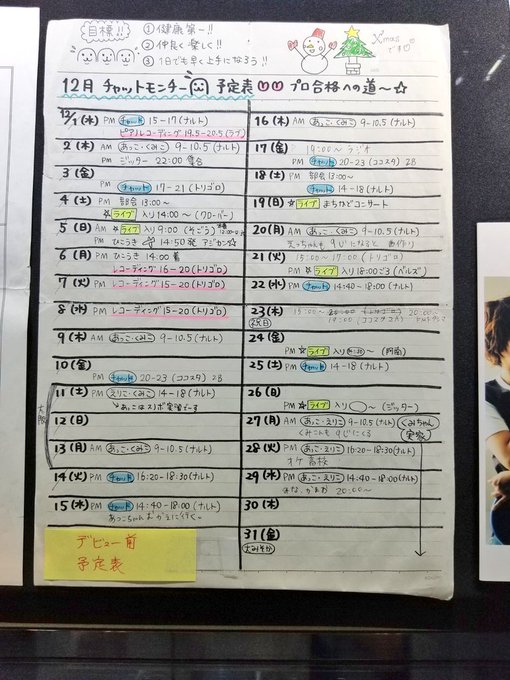 目標!!
① 健康第一!!
② 仲良く楽しく!!
③ 1日でも早く上手になろう!!
X'mas
です
12月 チャットモンチー 予定表 プロ合格への道〜☆
12/1 (水) PM チャット 15-17 (ナルト)
ピアノレコーディング 19.5-20.5 (ラブ)
2 (木) AM あっこ・くみこ 9-10.5 (ナルト)
PM ジッター 22:00 集合
3 (金)
PM チャット 17-21 (トリゴロ)
4 (土) PM 部会 13:00〜
☆ ライブ 入り 14:00〜 (クロ・バー)
5 (日) AM ☆ ライブ 入り 9:00 (そごう)
PM ひこうき 14:50発 アジカン☆
6 (月) PM ひこうき 14:00着
レコーディング 16-20 (トリゴロ)
7 (火) PM レコーディング 15-20 (トリゴロ)
8 (水) PM レコーディング 15-20 (トリゴロ)
9 (木) AM あっこ・くみこ 9-10.5 (ナルト)
10 (金)
PM チャット 20-23 (ココスタ) 2B
大阪
11 (土) PM えりこ・くみこ 14-18 (ナルト)
あっこはスノボ実習でーす
12 (日)
13 (月) AM あっこ・くみこ 9-10.5 (ナルト)
14 (火) PM チャット 16:20-18:30 (ナルト)
15 (水) PM チャット 14:40-18:00 (ナルト)
あっこちゃん むかえに行く。
デビュー前
予定表
16 (木) AM あっこ・くみこ 9-10.5 (ナルト)
17 (金) 19:00〜 ラジオ
PM チャット 20-23 (ココスタ) 2B
18 (土) PM 部会 13:00〜
チャット 14-18 (ナルト)
19 (日) ☆ ライブ まちかどコンサート
20 (月) AM あっこ・くみこ 9-10.5 (ナルト)
えっちゃんも 9じになると 曲作り
21 (火) 15:00-17:00 (トリゴロ)
PM ☆ ライブ 入り 18:00ごろ (ベルズ)
22 (水) PM チャット 14:40-18:00 (ナルト)
23 (木) 15:00〜 20:00〜
祝日 19:00 (ココスタ2A)
24 (金)
PM ☆ ライブ 入り 〜 (阿南)
25 (土) PM チャット 14-18 (ナルト)
26 (日)
PM ☆ ライブ 入り 〜 (ジッター)
27 (月) AM あっこ・えりこ 9-10.5 (ナルト) くみちゃん
くみこんも 9じにくる 実家
28 (火) PM あっこ・えりこ 16:20-18:30 (ナルト)
オケ 高校
29 (水) PM あっこ・えりこ 14:40-18:00 (ナルト)
20:00〜
30 (木)
31 (金)
大みそか